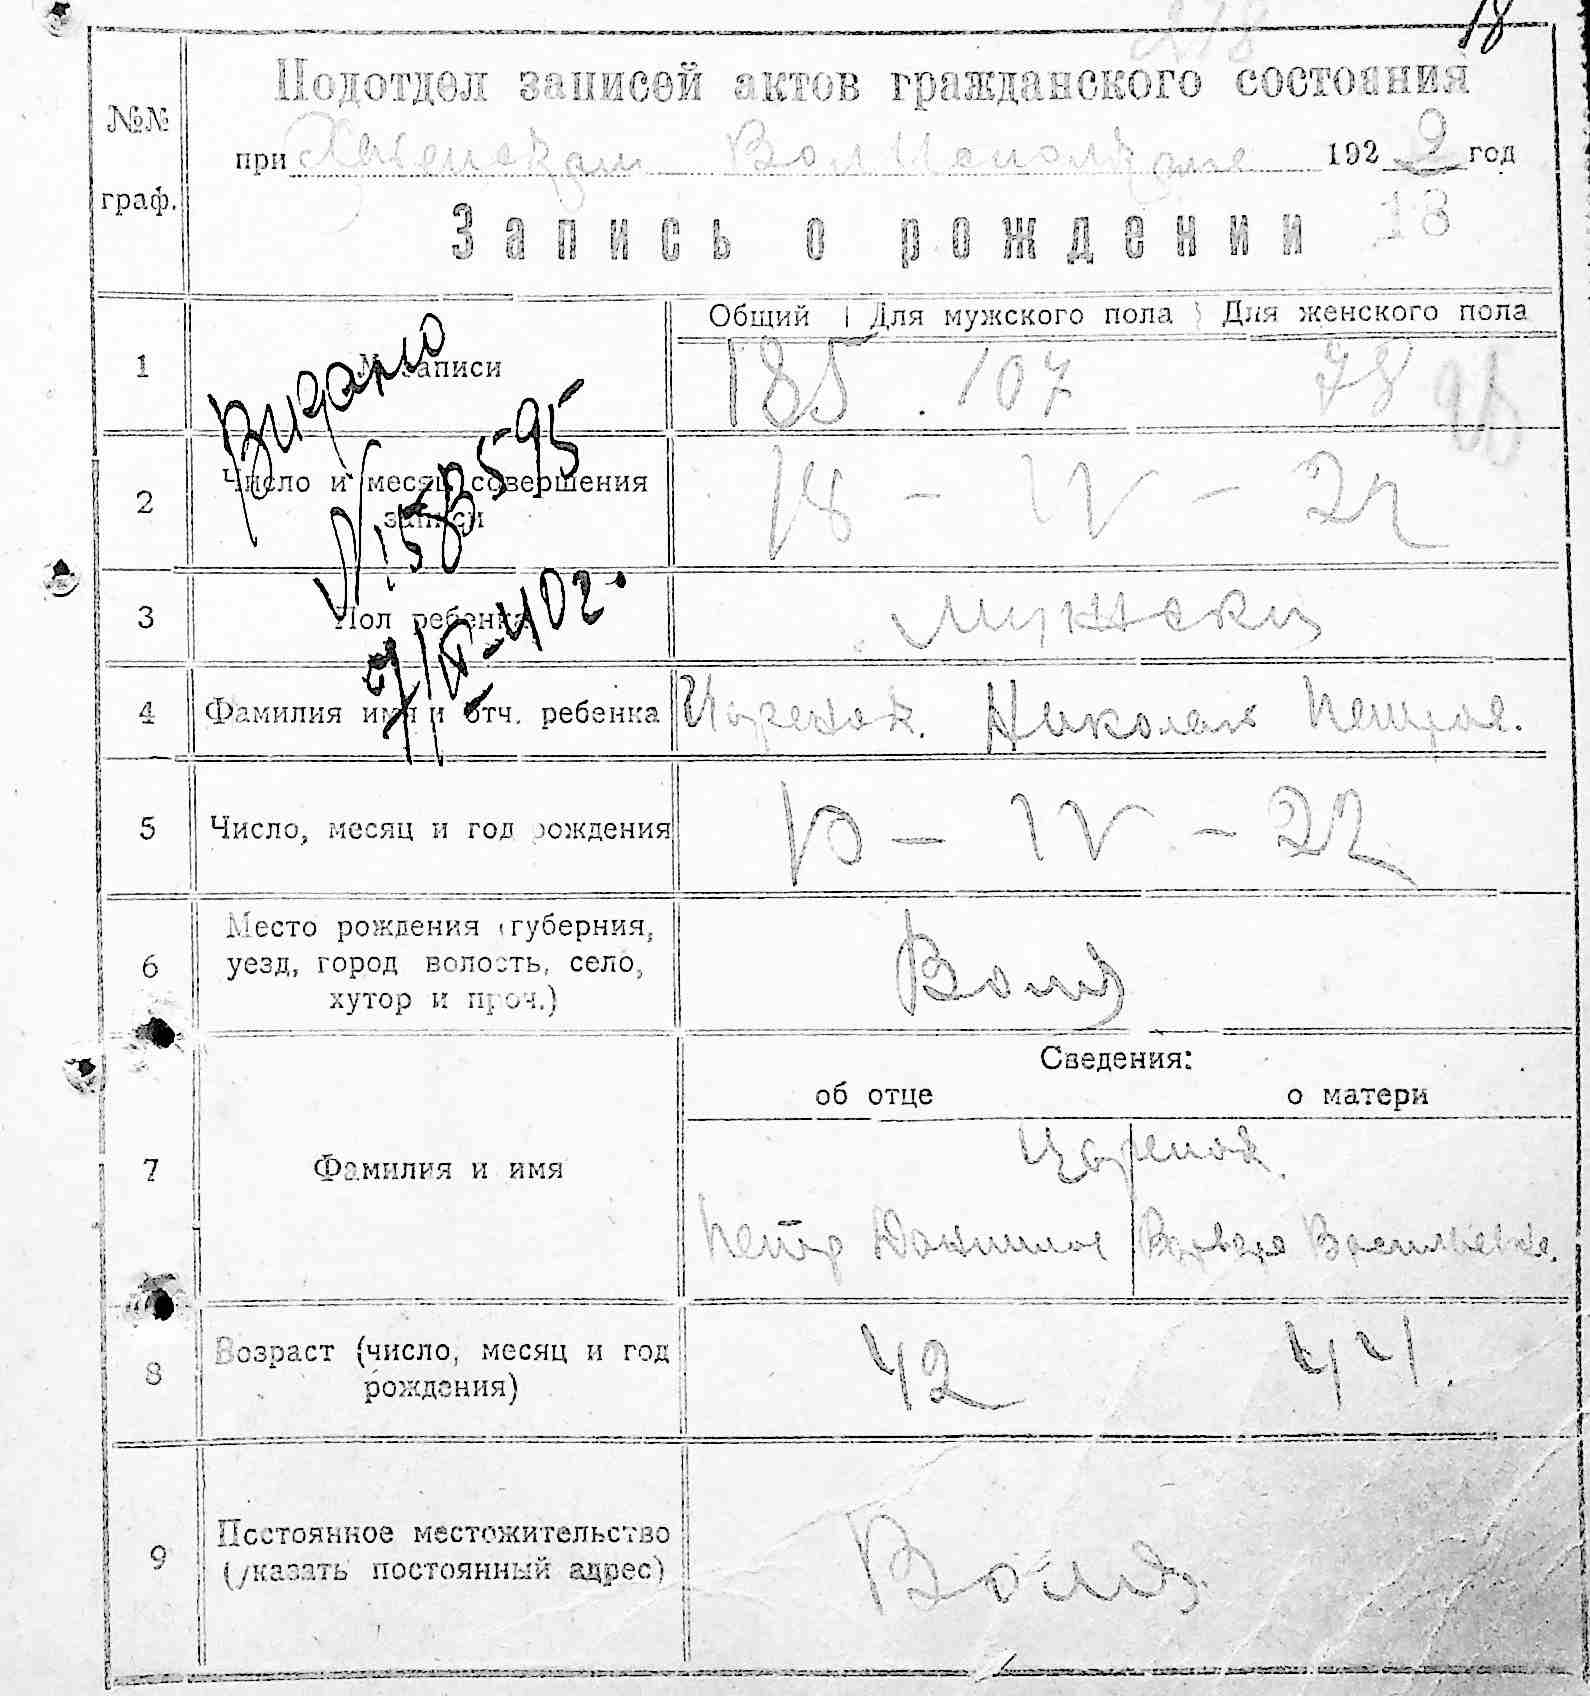 18
Подотдел записей актов гражданского состояния
при Волисполкоме 192 2 год
Запись о рождении 18
№№ граф.
Общий Для мужского пола Для женского пола
1 № записи 185 107 78
Видано
№ 583595
7/IV-40г.
2 Число и месяц совершения записи 18 - IV - 22
3 Пол ребенка Мужски
4 Фамилия имя и отч. ребенка Царенок. Николай Петров.
5 Число, месяц и год рождения 10 - IV - 22
6 Место рождения (губерния,
уезд, город волость, село,
хутор и проч.) Воля
Сведения:
об отце о матери
7 Фамилия и имя Царенок.
Петр Данилов Варвара Васильевна.
8 Возраст (число, месяц и год
рождения) 42 44.
9 Постоянное местожительство
(указать постоянный адрес) Воля